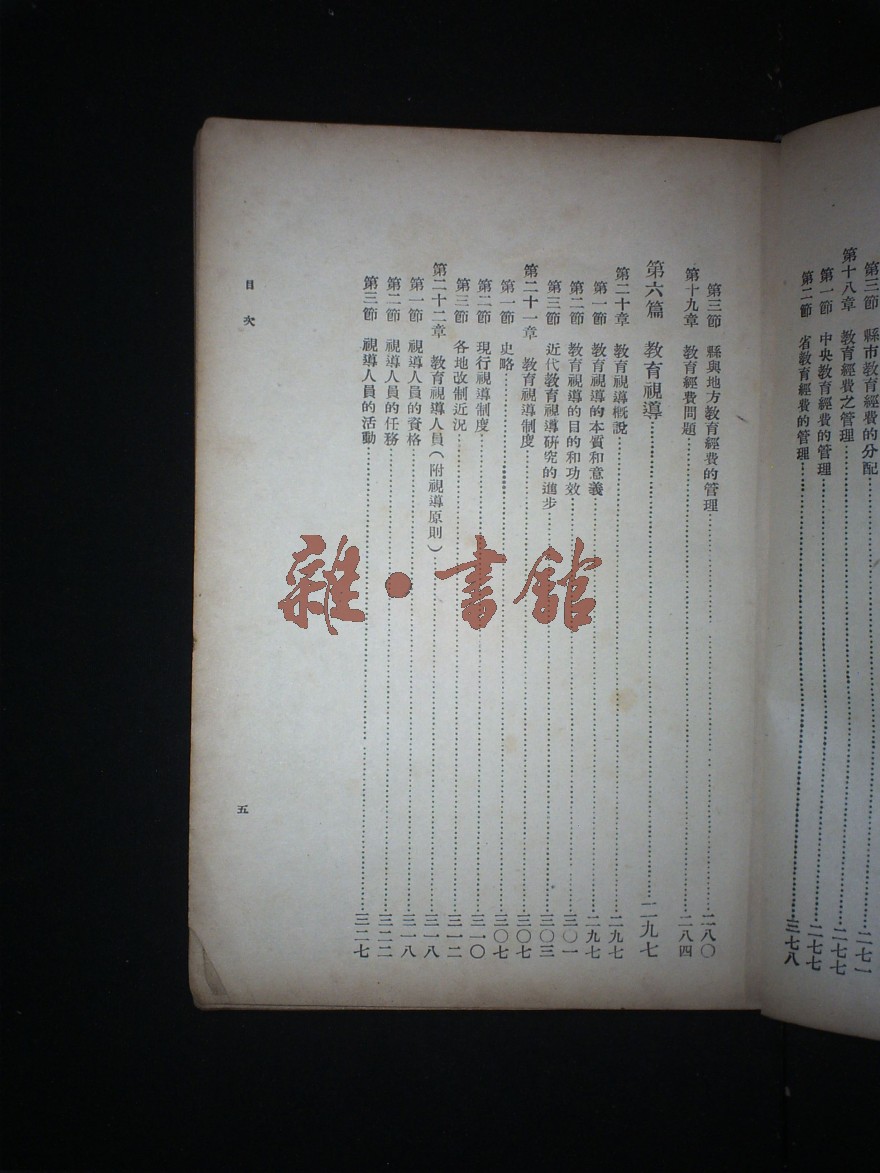 第三節 縣市教育經費的分配……二七一
第十八章 教育經費之管理……二七七
第一節 中央教育經費的管理……二七七
第二節 省教育經費的管理……三七八
第三節 縣與地方教育經費的管理……二八〇
第十九章 教育經費問題……二八四
第六篇 教育視導……二九七
第二十章 教育視導概說……二九七
第一節 教育視導的本質和意義……二九七
第二節 教育視導的目的和功效……三〇一
第三節 近代教育視導研究的進步……三〇三
第二十一章 教育視導制度……三〇七
第一節 史略……三〇七
第二節 現行視導制度……三一〇
第三節 各地改制近況……三一二
第二十二章 教育視導人員(附視導原則)……三一八
第一節 視導人員的資格……三一八
第二節 視導人員的任務……三二二
第三節 視導人員的活動……三二七
目次
五
雜·書館